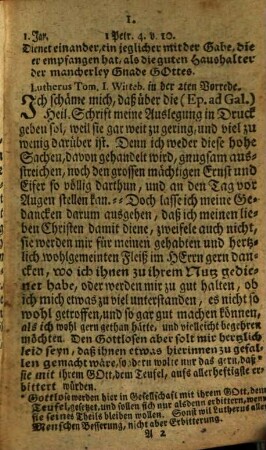 1.
1. Jan. 1 Petr. 4. v. 10.
Dienet einander, ein jeglicher mit der Gabe, die
er empfangen hat, als die guten Haushalter
der mancherley Gnade GOttes.
Lutherus Tom. I. Witteb. in der 2ten Vorrede.
Ich schäme mich, daß über die (Ep. ad Gal.)
Heil. Schrift meine Auslegung in Druck
geben sol, weil sie gar weit zu gering, und viel zu
wenig darüber ist. Denn ich weder diese hohe
Sachen, davon gehandelt wird, gnugsam aus-
streichen, noch den grossen mächtigen Ernst und
Eifer so völlig darthun, und an den Tag vor
Augen stellen kan. --- Doch lasse ich meine Ge-
dancken darum ausgehen, daß ich meinen lie-
ben Christen damit diene, zweifele auch nicht,
sie werden mir für meinen gehabten und hertz-
lich wohlgemeinten Fleiß im HErrn gern dan-
cken, wo ich ihnen zu ihrem Nutz gedie-
net habe, oder werden mir zu gut halten, ob
ich mich etwas zu viel unterstanden, es nicht so
wohl getroffen, und so gar gut machen können,
als ich wohl gern gethan hätte, und vielleicht begehren
möchten. Den Gottlosen aber solt mir herzlich
leid seyn, daß ihnen etwas hierinnen zu gefal-
len gemacht wäre, sondern wolte nur das gern, daß *
sie mit ihrem GOtt, dem Teufel, aufs allerheftigste er-
bittert würden.
* Gottlose werden hier in Gesellschaft mit ihrem GOtt, dem
Teufel, gesetzet, und sollen sich nur alsdenn erbittern, wenn
sie seines Theils bleiben wollen. Sonst wil Lutherus aller
Menschen Besserung, nicht aber Erbitterung.
A 2